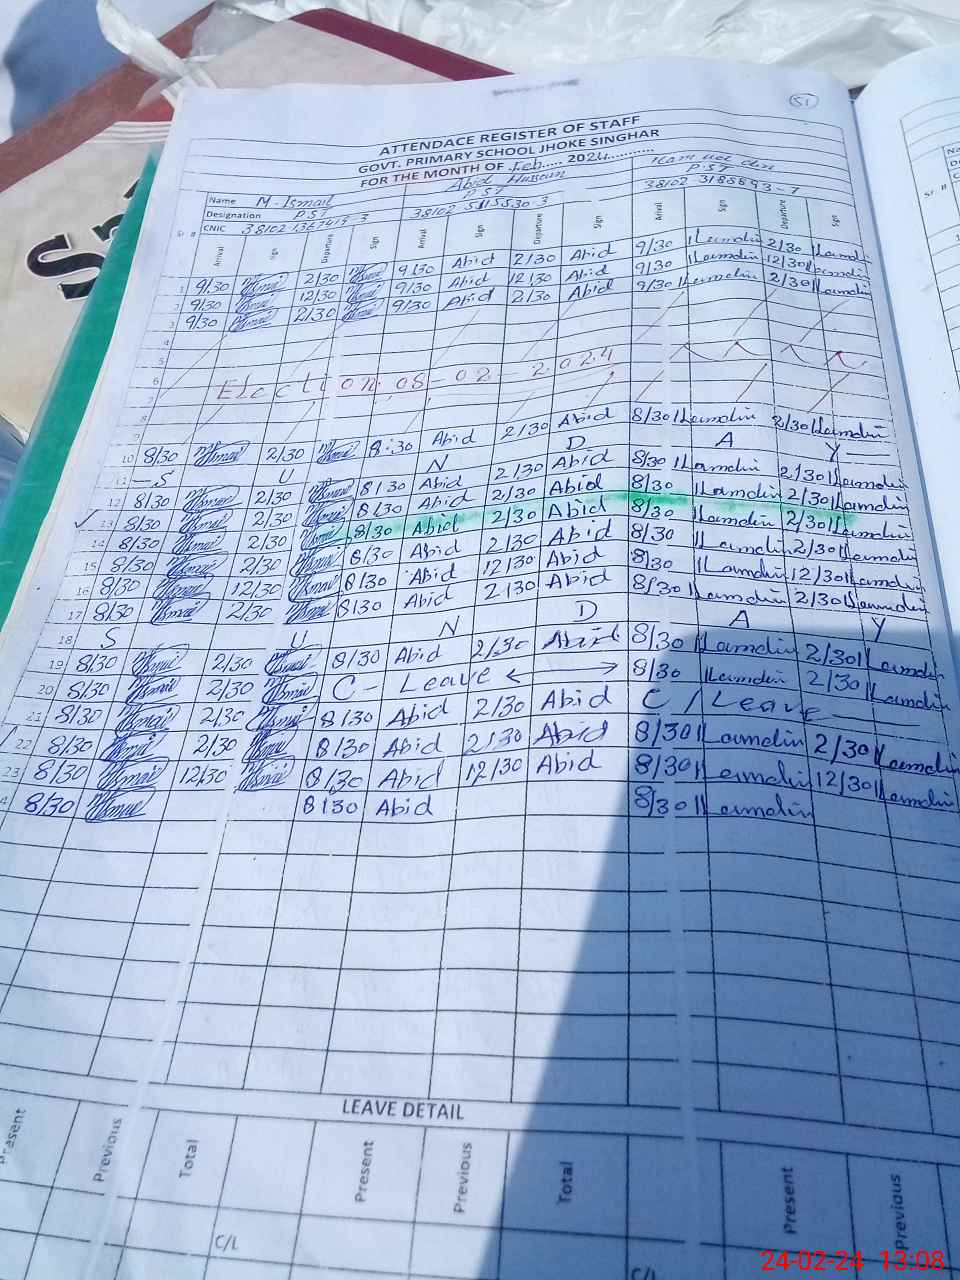 51
ATTENDACE REGISTER OF STAFF
GOVT. PRIMARY SCHOOL JHOKE SINGHAR
FOR THE MONTH OF Feb.... 2024............
Name M-Ismail Abid Hussain
Designation PST PST PST
Sr # CNIC
Arrival Sign Departure Sign Arrival Sign Departure Sign Arrival Sign Departure Sign
1 9/30 Ismail 2/30 Ismail 9/30 Abid 2/30 Abid 9/30 2/30
2 9/30 Ismail 12/30 Ismail 9/30 Abid 12/30 Abid 9/30 12/30
3 9/30 Ismail 2/30 Ismail 9/30 Abid 2/30 Abid 9/30 2/30
4
5
6 Election 08-02-2024
7
8
9
10 8/30 Ismail 2/30 Ismail 8:30 Abid 2/30 Abid 8/30 2/30
11 S U N D A Y
12 8/30 Ismail 2/30 Ismail 8/30 Abid 2/30 Abid 8/30 2/30
13 8/30 Ismail 2/30 Ismail 8/30 Abid 2/30 Abid 8/30 2/30
14 8/30 Ismail 2/30 Ismail 8/30 Abid 2/30 Abid 8/30 2/30
15 8/30 Ismail 2/30 Ismail 8/30 Abid 2/30 Abid 8/30 2/30
16 8/30 Ismail 12/30 Ismail 8/30 Abid 12/30 Abid 8/30 12/30
17 8/30 Ismail 2/30 Ismail 8/30 Abid 2/30 Abid 8/30 2/30
18 S U N D A Y
19 8/30 Ismail 2/30 Ismail 8/30 Abid 2/30 Abid 8/30 2/30
20 8/30 Ismail 2/30 Ismail C- Leave 8/30 2/30
21 8/30 Ismail 2/30 Ismail 8/30 Abid 2/30 Abid C/Leave
22 8/30 Ismail 2/30 Ismail 8/30 Abid 2/30 Abid 8/30 2/30
23 8/30 Ismail 12/30 Ismail 8/30 Abid 12/30 Abid 8/30 12/30
4 8/30 Ismail 8/30 Abid 8/30
LEAVE DETAIL
Present Previous Total Present Previous Total Present Previous
C/L C/L
24-02-24 13:08